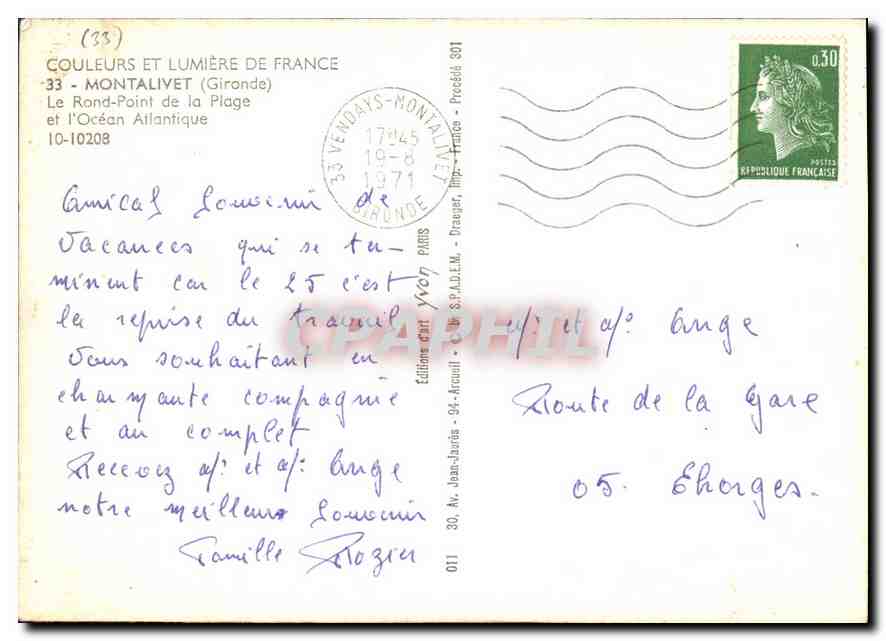 (33)
COULEURS ET LUMIÈRE DE FRANCE
33 - MONTALIVET (Gironde)
Le Rond-Point de la Plage
et l'Océan Atlantique
10-10208
33 VENDAYS-MONTALIVET
17H45
19-8
1971
GIRONDE
0,30
POSTES
REPUBLIQUE FRANÇAISE
Amical Souvenir de
Vacances qui se ter-
minent car le 25 c'est
la reprise du travail
Vous souhaitant en
charmante compagnie
et au complet
Recevez Mr et Me Ange
notre meilleur Souvenir
Famille Rozier
Editions d'art Yvon PARIS
011 30, Av. Jean-Jaurès - 94-Arcueil - © by S.P.A.D.E.M. - Draeger, Imp. - France - Procédé 301
Mr et Me Ange
Route de la Gare
05. Chorges.
CPAPHIL